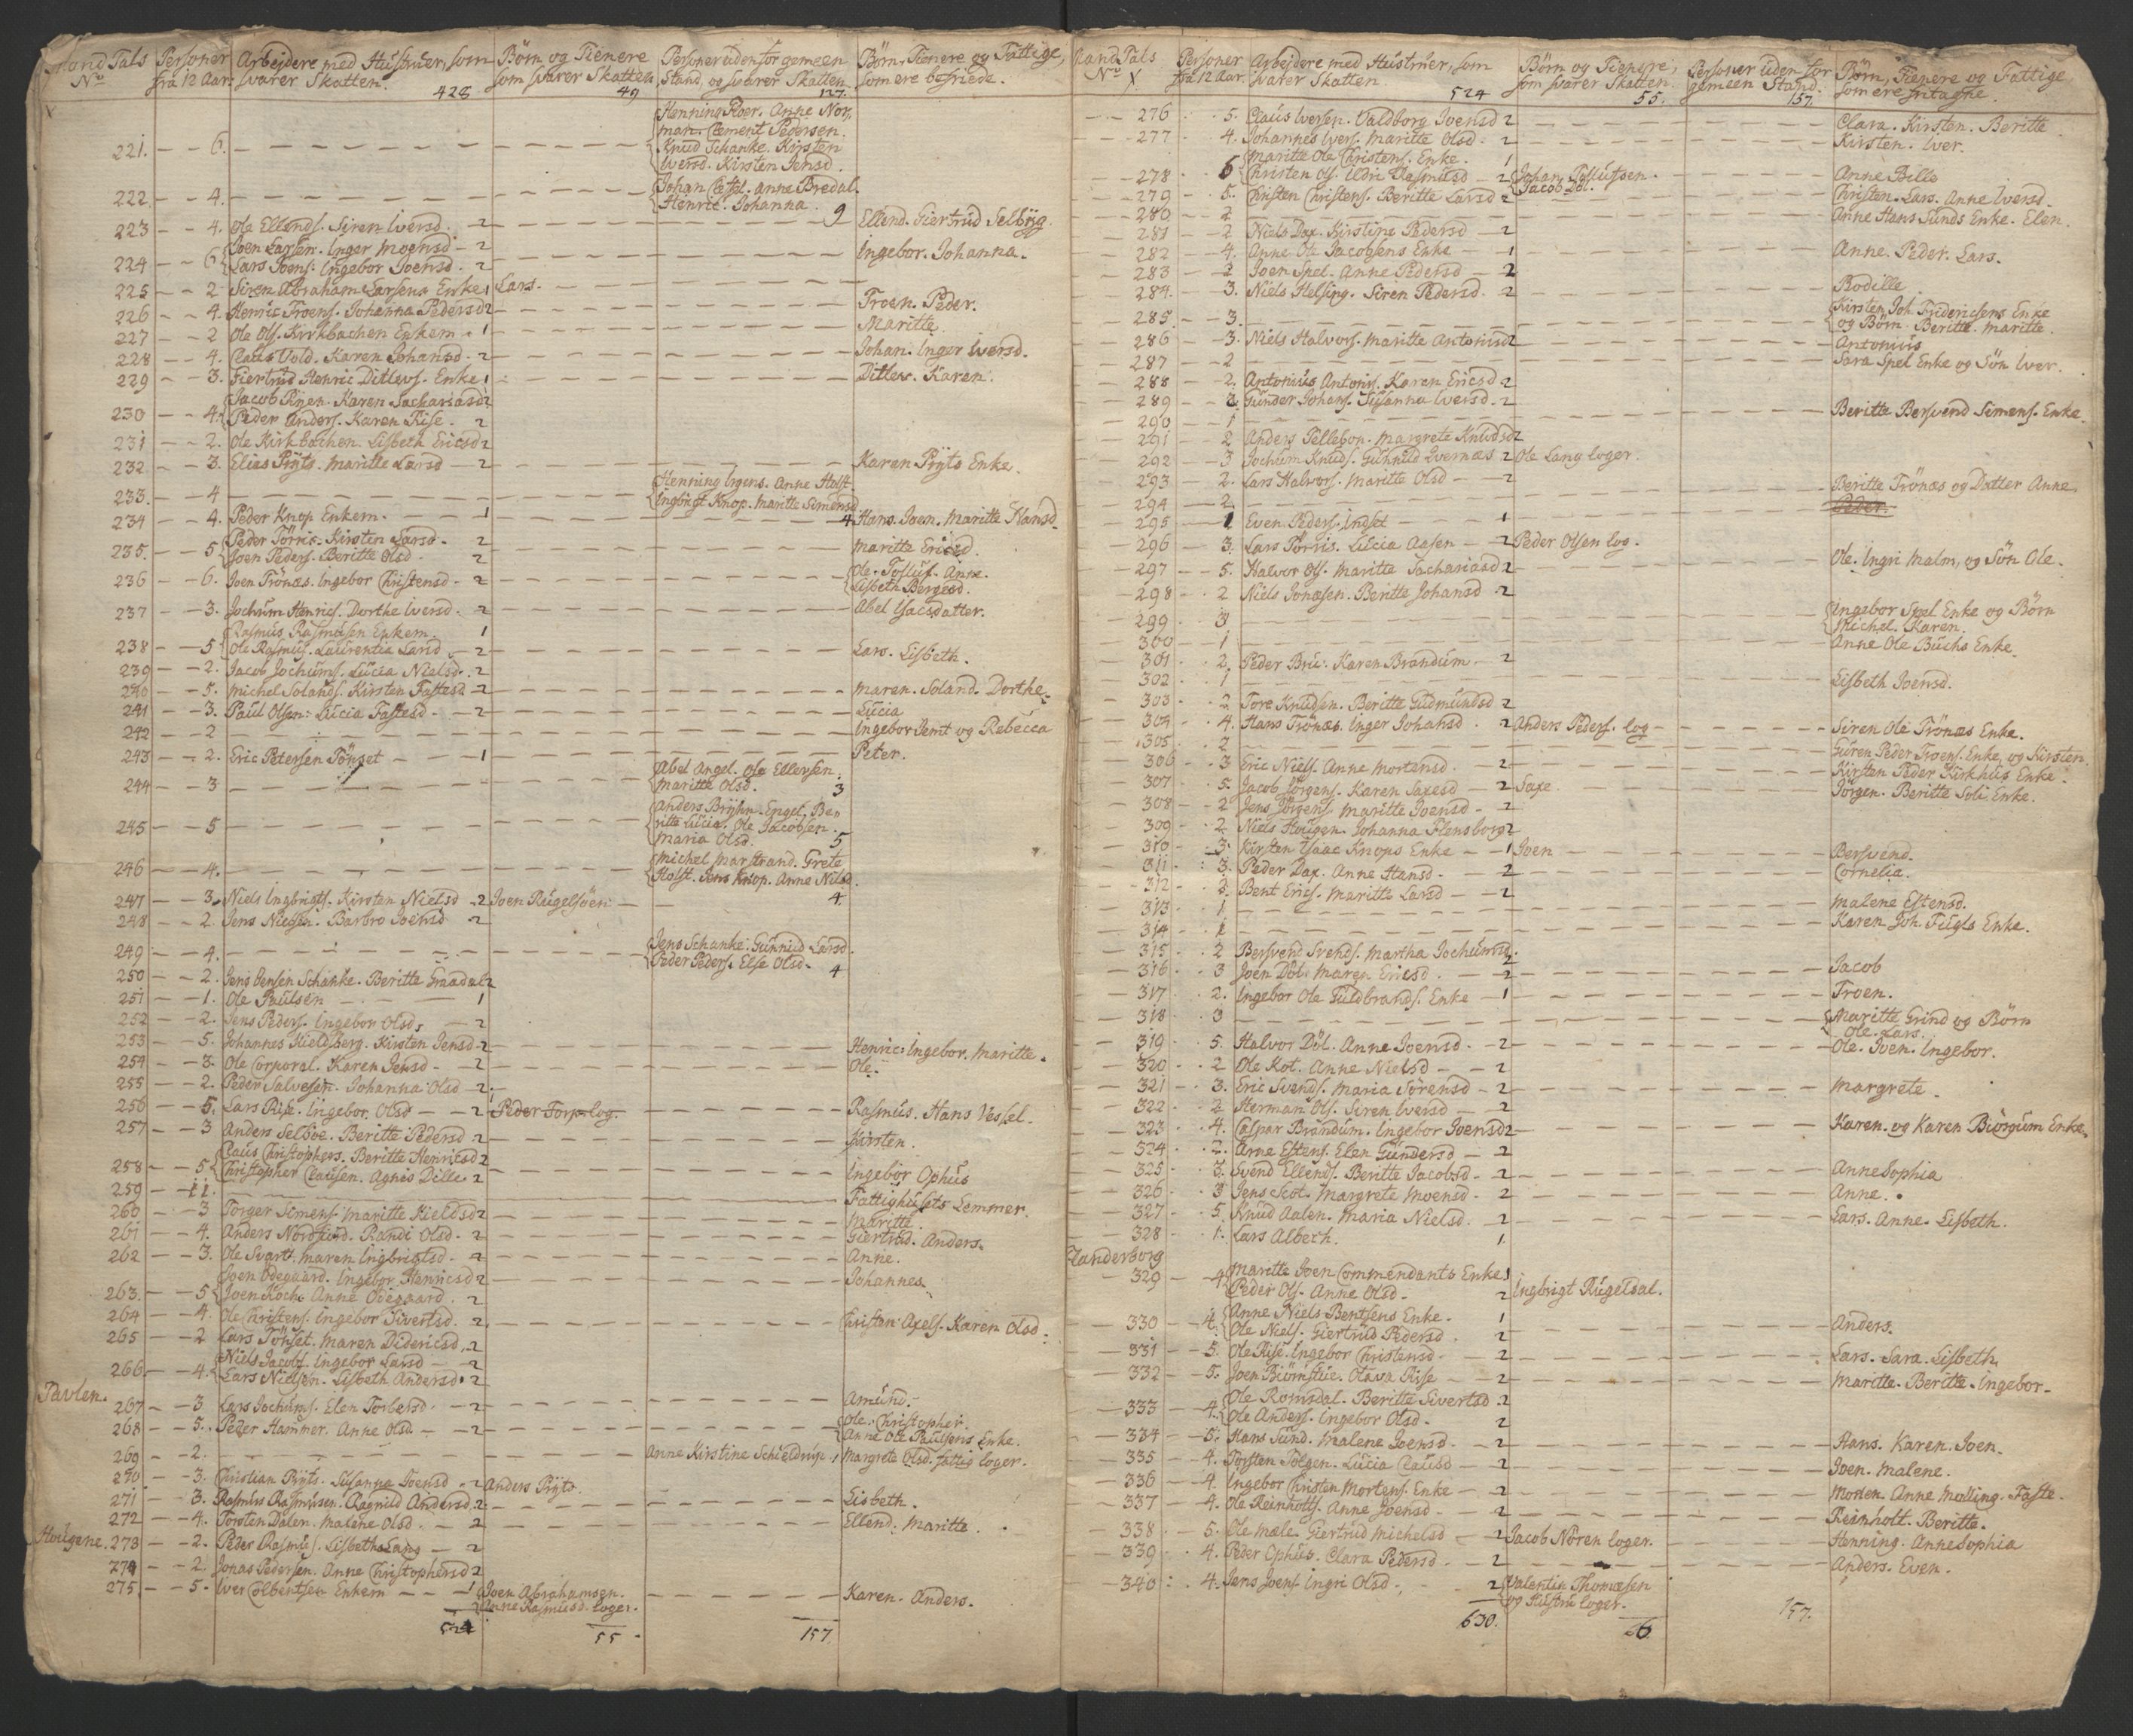 Mand Tals No | Personer fra 12 Aar. | Arbejdere med Hustruer, som svarer Skatten. 428 | Börn og Tienere som svarer Skatten 49 | Personer uden for gemeen Stand, og svarer Skatten 137. | Börn, Tienere og Fattige, som ere befriede.
221. 6. Henning Floer. Anne Nor,
man. Clement Pedersen.
Knud Schanke. Kirsten
Iversd. Kirsten Jensd.
222. 4. Johan Cettel. Anne Bredal.
Henric. Johanna. 9
223 4. Ole Ellends. Siren Iversd. 2 Ellend. Giertrud Selbÿg.
224 6. Joen Larsen. Inger Moensd 2
Lars Joens. Ingebor Joensd. 2 Ingebor. Johanna.
225 2 Siren Abraham Larsens Enke 1 Lars.
226 4. Henric Troens. Johanna Pedersd 2 Troen. Peder.
227 2 Ole Ols. Kirkbachen Enkem. 1 Maritte.
228 4. Claus Vold. Karen Johansd. 2 Johan. Inger Iversd.
229 3. Giertrud Henric Ditlevs. Enke 1 Ditlev. Karen.
230 4. Jacob Pinen. Karen Sachariasd 2
Peder Anders. Karen Rise. 2
231 2. Ole Kirkbachen. Lisbeth Ericsd 2
232 3. Elias Prÿts. Maritte Larsd 2 Karen Prÿts Enke.
233. 4 Henning Irgens. Anne Holst.
Ingbrigt Knop. Maritte Simensd
234 4. Peder Knop Enkem. 1 4 Hans. Joen. Maritte Hansd.
235. 5 Peder Törris. Kirsten Larsd. 2
Joen Peders. Beritte Olsd. 2 Maritte Ericsd.
236 6. Joen Trönæs. Ingebor Christensd. 2 Ole. Tollüf. Anne.
Lisbeth Bergesd.
237 3. Jochum Henrics. Dorthe Iversd. 2 Abel Isacsdatter.
238 5 Rasmus Rasmusen Enkem. 1
Ole Rasmus. Laurentia Larsd. 2 Lars. Lisbeth.
239 2. Jacob Jochums. Lucia Nielsd. 2
240 5. Michel Solands. Kirsten Fastesd. 2 Maren. Soland. Dorthe.
241 3. Paul Olsen. Lucia Fastesd. 2 Lucia
242 2 Ingebor Jemt og Rebecca
243 2. Eric Petersen Tönset 1 Peter.
244 3 Abel Angel. Ole Ellevsen.
Maritte Olsd. 3
245 5 Anders Brÿhn. Engel. Be,
ritte Lucia. Ole Jacobsen.
Maria Olsd. 5
246 4. Michel Marstrand. Grete
Holst. Jens Knop. Anne Nilsd.
247 3. Niels Ingbrigts. Kirsten Nielsd 2 Joen Rugelsöen 4
248 2. Jens Nielsen. Barbro Joensd 2
249 4. Jens Schanke. Gunnild Larsd.
Peder Peders. Else Olsd. 4
250 2. Jens Jensen Schanke. Beritte Graadal 2
251 1. Ole Paulsen 1
252 2. Jens Peders. Ingebor Olsd. 2
253 5. Johannes Kieldberg. Kirsten Jensd 2 Henric. Ingebor. Maritte.
254 3. Ole Corporal. Karen Jensd. 2 Ole.
255 2. Peder Salvesen. Johanna Olsd 2
256 5. Lars Rise. Ingebor. Olsd 2 Peder Torp log. Rasmus. Hans Vessel.
257 3 Anders Selböe. Beritte Pedersd 2 Kirsten.
258 5 Claus Christophers. Beritte Henricsd 2
Christopher Clausen. Agnis Dille 2 Ingebor Ophus
259 11. Fattighusets Lemmer.
260 3 Torger Simens. Maritte Kieldsd 2 Maritte.
261 4. Anders Nordfund. Randi Olsd. 2 Giertrud. Anders.
262 3. Ole Svart. Maren Ingbrigtsd. 2 Anne.
263. 5 Joen Ödegaard. Ingebor Henricsd 2 Johannes.
Joen Koch. Anne Ödegaard. 2
264 4. Ole Christens. Ingebor Sivertsd. 2 Christen Axels. Karen Olsd.
265 2 Lars Tönset. Maren Didericsd. 2
266. 4. Niels Jacobs. Ingebor Larsd 2
Lars Nielsen. Lisbeth Andersd. 2
Tavlen.
267 3 Lars Jochums. Elen Torlevsd. 2 Amund.
268 5. Peder Hammer. Anne Olsd. 2 Ole. Christopher.
Anne Ole Paulsens Enke.
269 2. Anne Kirstine Schieldrup 1 Margrete Olsd. fattig loger.
270 3. Christian Prÿts. Susanna Joensd. 2 Anders Prÿts.
271 3. Rasmus Rasmusen. Ragnild Andersd. 2 Lisbeth.
272 4. Torsten Dalen. Malene Olsd. 2 Ellend. Maritte.
Haugene. 273 2. Peder Rasmus. Lisbeth Lang 2
274 2. Jonas Pedersen. Anne Christophersd 2
275 5. Iver Colbentsen Enkem 1 Joen Abrahamsen.
Anne Rasmusd. loger. Karen. Anders.
524 55 157.
Mand Tals No | Personer fra 12 Aar. | Arbejdere med Hustruer, som svarer Skatten. 524 | Börn og Tienere, som svarer Skatten. 55. | Personer uden for gemeen Stand. 157. | Börn, Tienere og Fattige, som ere fritagne.
276 5. Claus Iversen. Valdborg Joensd 2 Clara. Kirsten. Beritte
277 4. Johannes Ivers. Maritte Olsd. 2 Kirsten. Iver.
278 6 Maritte Ole Christens. Enke. 1
Christen Ols. Eldri Rasmusd 2 Johan Tollufsen.
Jacob Döl. Anne Bille
279 5. Christen Christens. Beritte Larsd 2 Christen. Lars. Anne Iversd.
280 2 Anne Hans Sunds Enke. Elen.
281 2 Niels Dax. Kirstine Pedersd 2
282 4. Anne Ole Jacobsens Enke 1 Anne. Peder. Lars.
283 2 Joen Spel. Anne Pedersd 2
284. 3. Niels Helsing. Siren Pedersd. 2 Bodille
285. 3. Kirsten Joh. Fridericsens Enke
og Börn. Beritte. Maritte.
286 3. Niels Halvors. Maritte Antonisd 2 Antonius
287 2 Sara Spel Enke og Sön Iver.
288 2. Antonius Antonis. Karen Ericsd 2
289 2 Gunder Johans. Susanna Iversd. 2
290 1 Beritte Bersvend Simens. Enke.
291 2 Anders Pillebon. Margrete Knudsd 2
292 3 Jochum Knuds. Gunnild Evernæs 2 Ole Lang loger.
293 2. Lars Halvors. Maritte Olsd 2
294 2. Beritte Trönæs og Datter Anne.
295 1 Even Peders. Indset 1 Peder.
296 3. Lars Törris. Lucia Aasen 2 Peder Olsen log.
297 5. Halvor Ols. Maritte Sachariasd 2 Ole. Ingri Malm, og Sön Ole.
298 2 Niels Jonæsen. Beritte Johansd 2
299 3 Ingebor Spel Enke og Börn
Michel. Karen.
300 1 Anne Ole Buchs Enke.
301 2. Peder Bru. Karen Brandum. 2
302 1 Lisbeth Joensd.
303 2 Tore Knudsen. Beritte Gudmundsd 2
304 4. Hans Trönæs. Inger Johansd. 2 Anders Peders. log Siren Ole Trönæs Enke.
305 2 Guren Peder Troens. Enke, og Kirsten
306 3 Eric Niels. Anne Mortensd. 2 Kirsten Peder Kirkhus Enke.
307 5. Jacob Jörgens. Karen Saxesd 2 Saxe Jörgen. Beritte Soli Enke.
308 2 Jens Jörgens. Maritte Joensd 2
309 2 Niels Haugen. Johanna Flensborg 2
310 3. Kirsten Isaac Knops Enke 1 Joen Bersvend.
311 3. Peder Dax. Anne Hansd. 2 Cornelia.
312 2. Bent Erics. Maritte Larsd 2
313 1 Malene Estensd.
314 1 Karen Joh. Fugls Enke.
315 2 Bersvend Svends. Martha Jochumsd 2
316 3 Joen Döl. Maren Ericsd. 2 Jacob
317 2. Ingebor Ole Guldbrands. Enke 1 Troen.
318 3 Maritte Grind og Börn
Ole. Lars.
319 5. Halvor Döl. Anne Joensd. 2 Ole. Joen. Ingebor.
320 2 Ole Kot. Anne Nielsd 2
321 3. Eric Svends. Maria Sörensd 2 Margrete.
322 2 Herman Ols. Siren Iversd 2
323 4. Caspar Brandum. Ingebor Joensd 2 Karen. og Karen Biörgum Enke.
324 2. Arne Estens. Elen Gundersd 2
325 3. Svend Ellends. Beritte Jacobsd. 2 Anne Sophia
326 3 Jens Scot. Margrete Moensd. 2 Anne.
327 5. Knud Aalen. Maria Nielsd. 2 Lars. Anne. Lisbeth.
328 1. Lars Albech. 1.
Zanderborg
329 4 Maritte Joen Commendants Enke 1
Peder Ols. Anne Olsd. 2 Ingbrigt Rugelsal.
330 4. Anne Niels Bentsens Enke. 1
Ole Niels. Giertrud Pedersd. 2 Anders.
331 5. Ole Rise. Ingebor Christensd. 2 Lars. Sara. Lisbeth.
332 5. Joen Biörnstue. Olava Rise 2 Maritte. Beritte. Ingebor.
333 4. Ole Romsdal. Beritte Sivertsd. 2
Ole Anders. Ingebor Olsd. 2
334 5. Hans Sund. Malene Joensd. 2 Hans. Karen. Joen.
335 4. Torsten Tolgen. Lucia Clausd 2 Joen. Malene.
336 4. Ingebor Christen Mortens. Enke 2 Morten. Anne Malling. Faste.
337 4. Ole Reinholts. Anne Joensd. 2 Reinholt. Beritte.
338 5. Ole Male. Giertrud Michelsd 2 Jacob Noren loger. Henning. Anne Sophia
339 4. Peder Ophus. Clara Pedersd. 2 Anders. Even.
340 4. Jens Joens. Ingri Olsd. 2 Valentin Thomæsen
og Hustru loger.
630. 66 157.